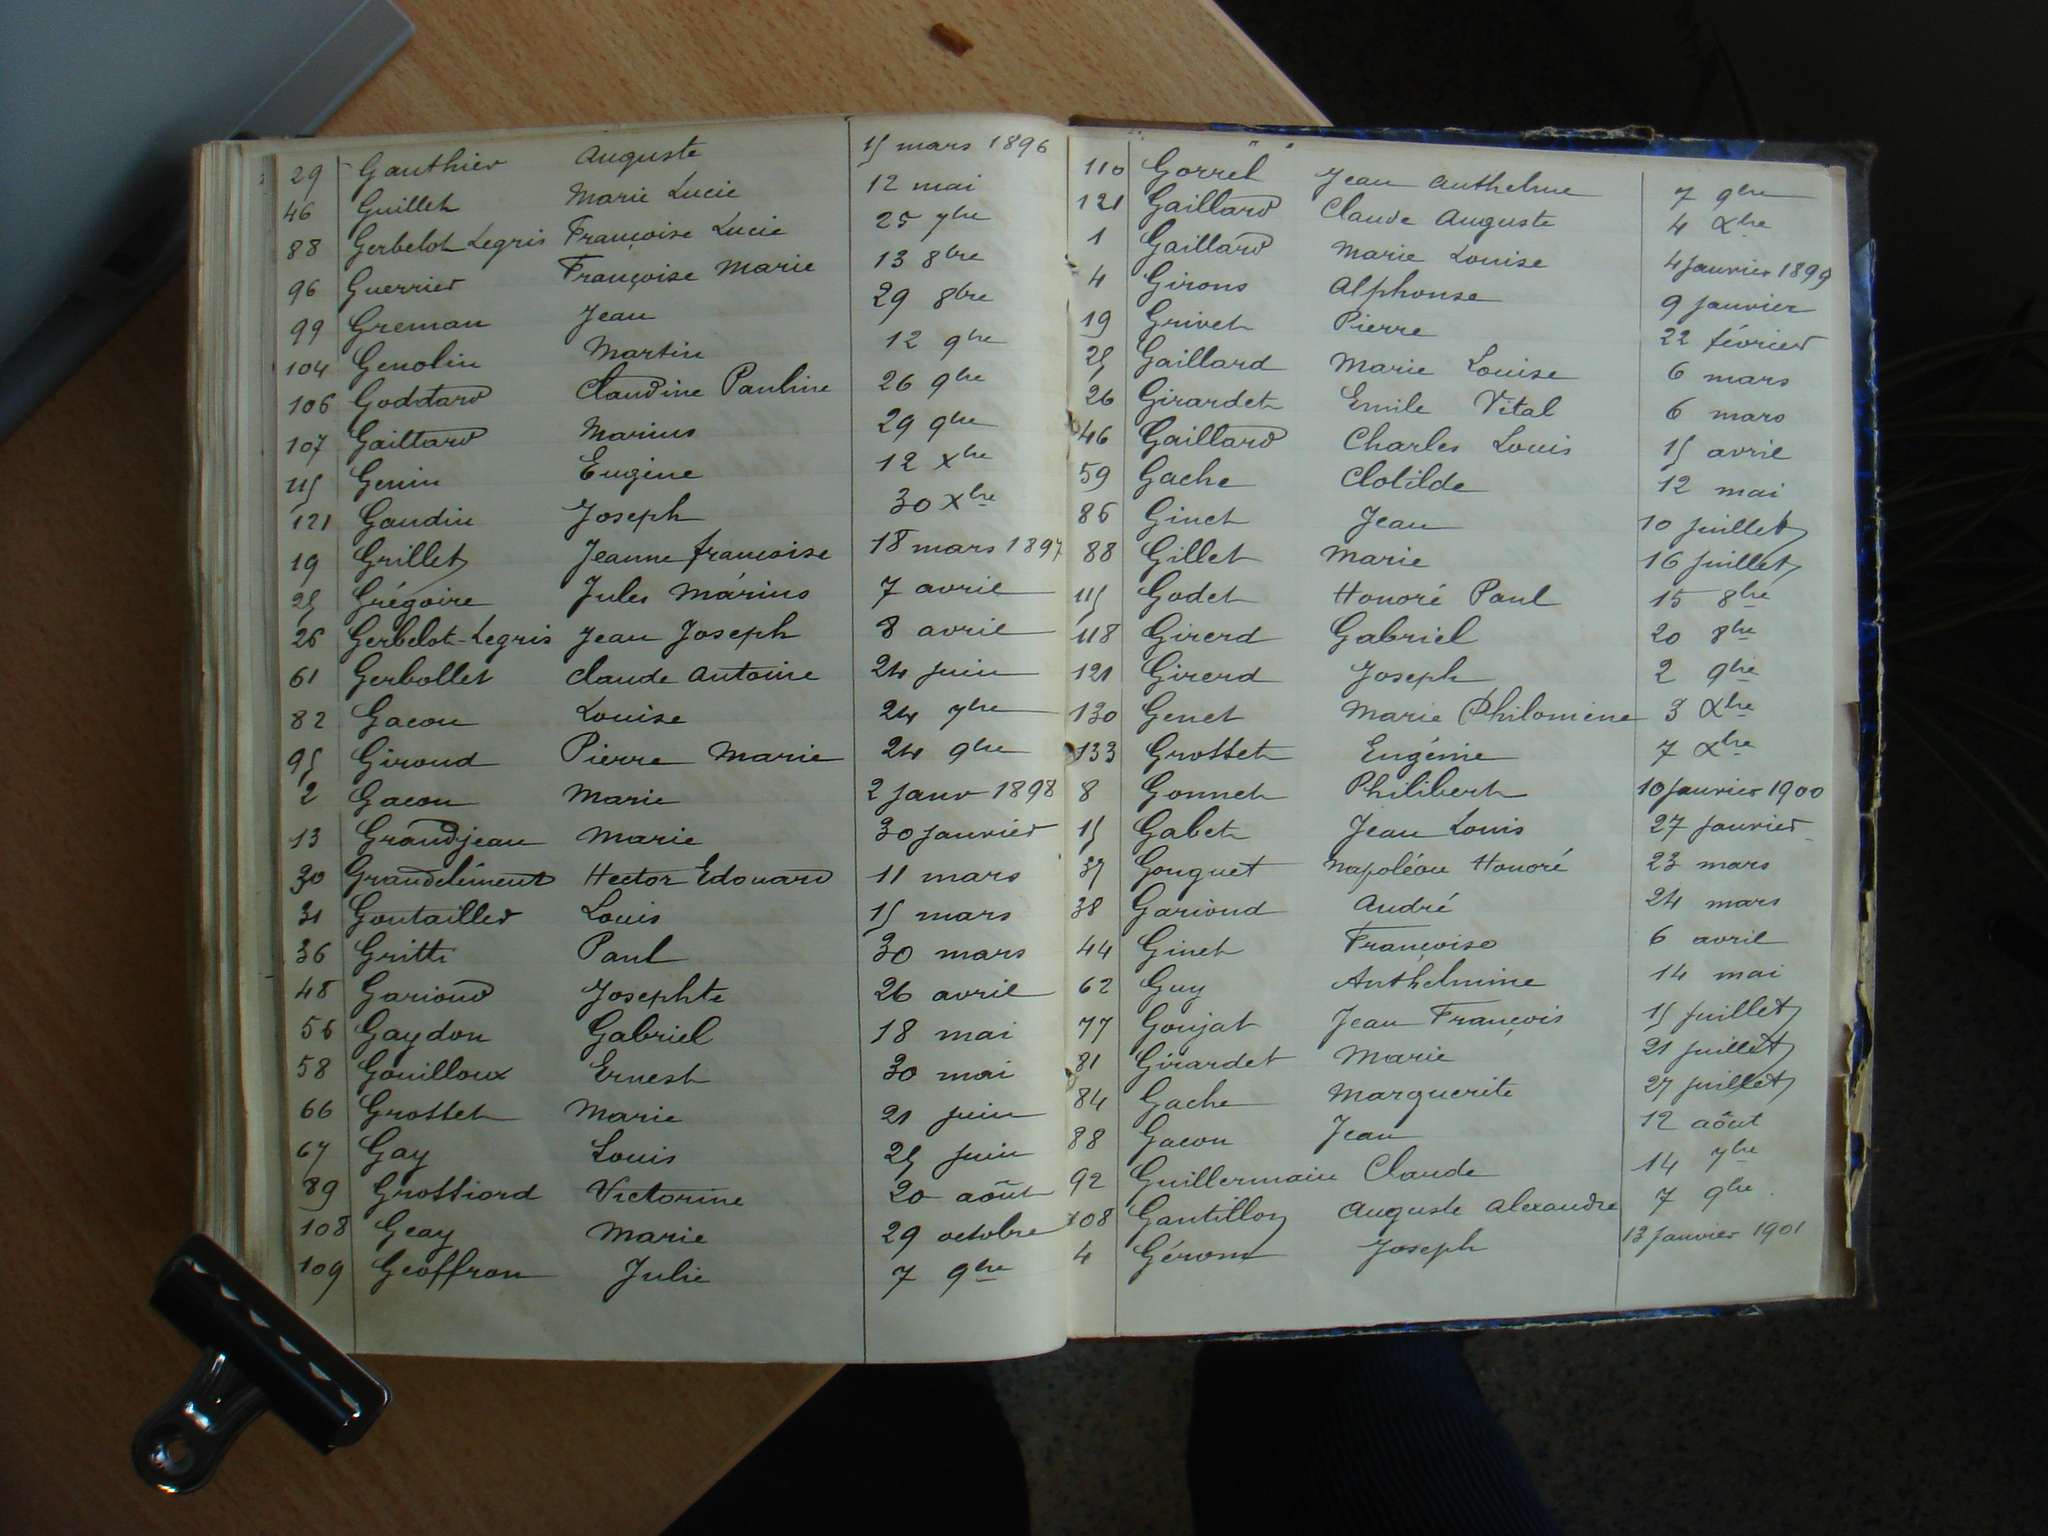 29 Gauthier Auguste 15 mars 1896
46 Guillet Marie Lucie 12 mai
88 Gerbelot Legris Françoise Lucie 25 7bre
96 Guerrier Françoise Marie 13 8bre
99 Greman Jean 29 8bre
104 Genolin Martin 12 9bre
106 Goddard Claudine Pauline 26 9bre
107 Gaillard Marius 29 9bre
115 Genin Eugène 12 Xbre
121 Gaudin Joseph 30 Xbre
19 Grillet Jeanne françoise 18 mars 1897
25 Grégoire Jules Marius 7 avril
26 Gerbelot-Legris Jean Joseph 8 avril
61 Gerbollet Claude Antoine 24 juin
82 Gacon Louise 24 7bre
95 Giroud Pierre Marie 24 9bre
2 Gacon Marie 2 Janv 1898
13 Grandjean Marie 30 Janvier
30 Grandclément Hector Edouard 11 mars
31 Goutailler Louis 15 mars
36 Gritti Paul 30 mars
48 Garioud Josephte 26 avril
56 Gaydon Gabriel 18 mai
58 Gouilloux Ernest 30 mai
66 Grosset Marie 21 juin
67 Gay Louis 25 juin
89 Grossiord Victorine 20 août
108 Geay Marie 29 octobre
109 Geoffron Julie 7 9bre
110 Gorrel Jean Anthelme 7 9bre
121 Gaillard Claude Auguste 4 Xbre
1 Gaillard Marie Louise 4 Janvier 1899
4 Girons Alphonse 9 Janvier
19 Grivet Pierre 22 février
25 Gaillard Marie Louise 6 mars
26 Girardet Emile Vital 6 mars
46 Gaillard Charles Louis 15 avril
59 Gache Clotilde 12 mai
86 Ginet Jean 10 juillet
88 Gillet Marie 16 juillet
115 Godet Honoré Paul 15 8bre
118 Girerd Gabriel 20 8bre
121 Girerd Joseph 2 9bre
130 Genet Marie Philomène 3 Xbre
133 Grosset Eugénie 7 Xbre
8 Gonnet Philibert 10 Janvier 1900
15 Gabet Jean Louis 27 Janvier
37 Gouguet Napoléon Honoré 23 mars
38 Garioud André 24 mars
44 Ginet Françoise 6 avril
62 Guy Anthelmine 14 mai
77 Goujat Jean François 15 juillet
81 Girardet Marie 21 juillet
84 Gache Marguerite 27 juillet
88 Gacon Jean 12 août
92 Guillermain Claude 14 7bre
108 Gantillon Auguste Alexandre 7 9bre
4 Gérom Joseph 13 Janvier 1901